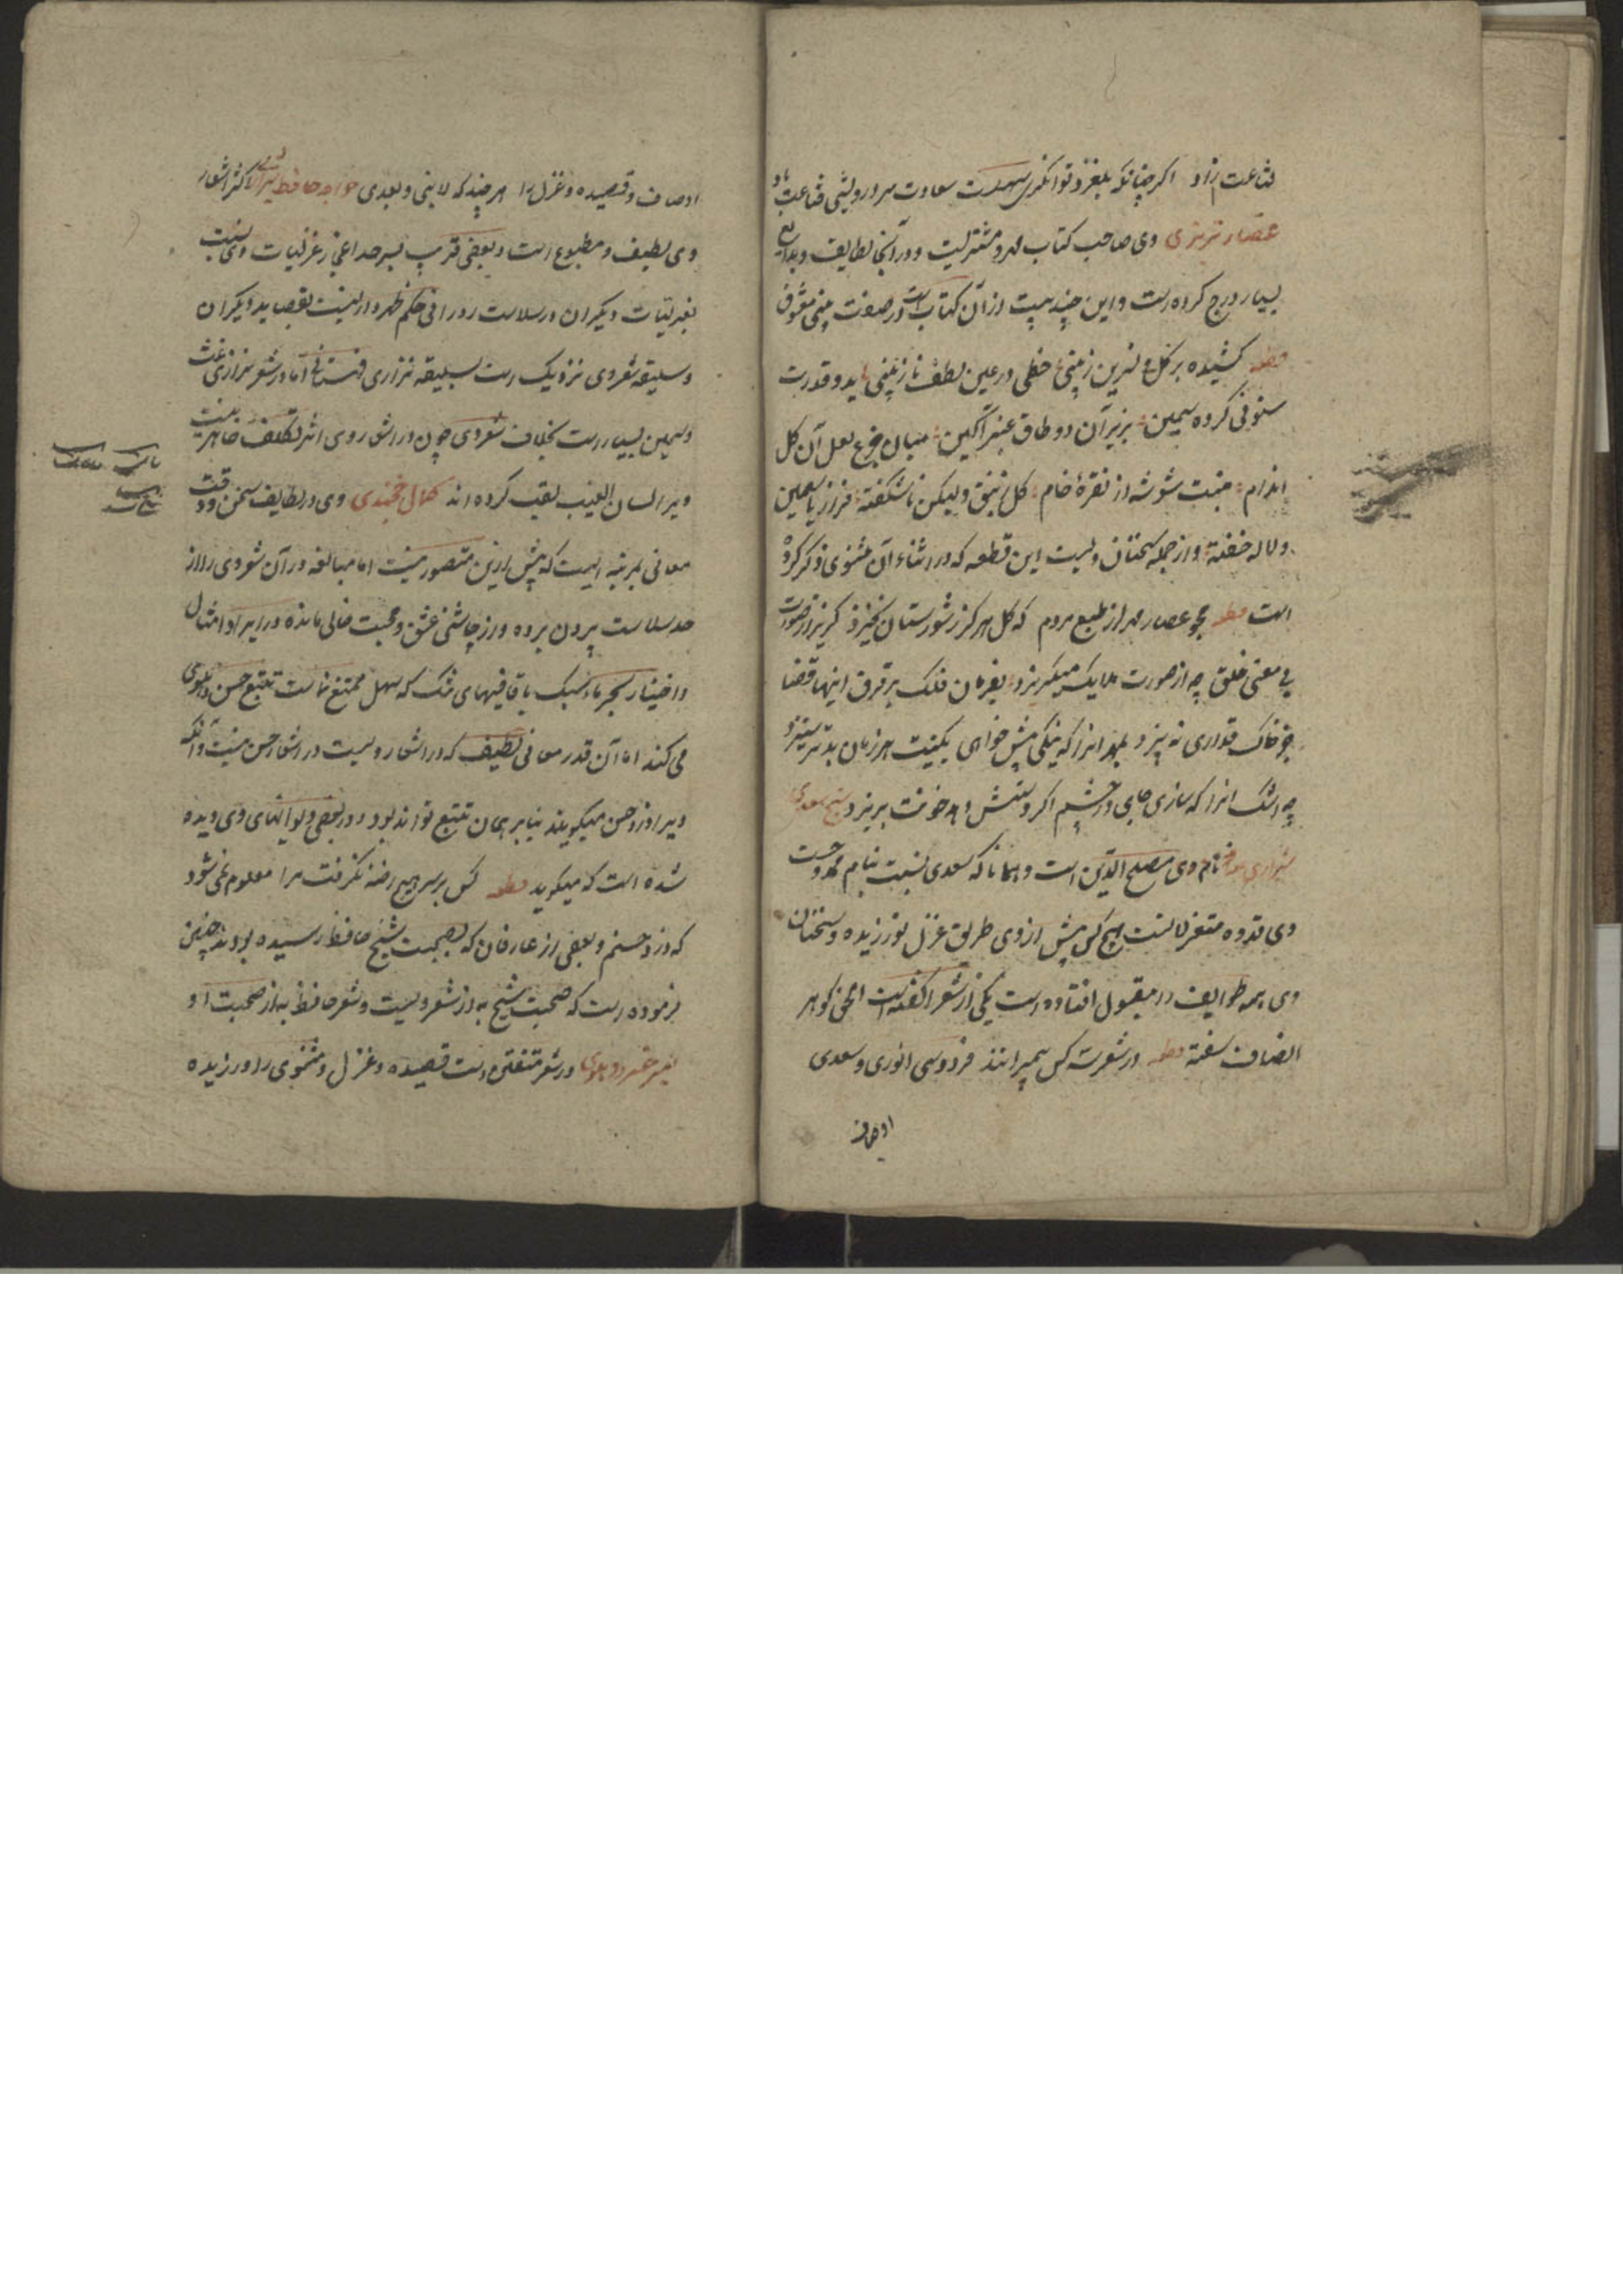 قناعت زاد اگر چنانکه بلغزد توانگری سهلست سعادت سر درویشی قناعت باد
عصار تبریزی وی صاحب کتاب مهر و مشتریست و در آنجا لطایف و بدایع
بسیار درج کرده است و این چند بیت از آن کتابست در صفت بینی معشوق
قطعه کشیده بر گل و نسرین ز بینی خطی در عین لطف نازنینی ید قدرت
ستونی کرده سیمین بزیر آن دو طاق عنبر آگین میان جزع لعل آن گل
اندام مثبت شوشه از نقره خام گل زنبق ولیکن ناشکفته فراز یاسمین
و لاله خفته و از جمله سخنان ویست این قطعه که در اثناء آن مثنوی ذکر کرده
است قطعه مجو عصار مهر از طبع مردم که گل هرگز ز شورستان نخیزد گریز از صورت
بی معنی خلق چه از صورت ملایک میگریزد بغربال فلک بر فرق اینها قضا
جز خاک غداری نه بیزد بمهر انرا که نیکی بیش خواهی بکینت هر زمان بدتر ستیزد
چه اشک انرا که سازی جای در چشم اگر دستش دهد خونت بریزد شیخ سعدی
شیرازی نام وی مصلح الدین است و همانا که سعدی نسبت بنام ممدوحست
وی قدوه متغزلانست هیچ کس پیش از وی طریق غزل نورزیده و سخنان
وی همه طوایف را مقبول افتاده است یکی از شعرا گفته است الحق گوهر
انصاف سفته قطعه در شعر سه کس پیمبرانند فردوسی انوری و سعدی
اوصاف
اوصاف و قصیده و غزل را هر چند که لا نبی و بعدی خواجه حافظ شیرازی اکثر اشعار
وی لطیف و مطبوع است و بعضی قریب بسر حد اعجاز غزلیات وی نسبت
بغزلیات دیگران در سلاست و روانی حکم ظهیر دارد نسبت بقصاید دیگران
و سلیقه شعر وی نزدیک است بسلیقه نزاری قهستانی اما در شعر نزاری غث
و سمین بسیار است بخلاف شعر وی چون در اشعار وی اثر تکلف ظاهر نیست
ویرا لسان الغیب لقب کرده اند کمال خجندی وی در لطایف سخن و دقت
معانی بمرتبه ایست که بیش ازین متصور نیست اما مبالغه در آن شعر وی را از
حد سلاست بیرون برده و از چاشنی عشق و محبت خالی مانده در ایراد امثال
و اختیار بحرهاء سبک با قافیهای خنک که سهل ممتنع نماست تتبع حسن دهلوی
می کند اما آن قدر معانی لطیف که در اشعار ویست در اشعار حسن نیست و آنکه
ویرا دزد حسن میگویند بنابر همان تتبع تواند بود و در بعضی دیوانهای وی دیده
شده است که میگوید قطعه کس بر سر هیچ رخنه نگرفت مرا معلوم نمی شود
که دزد حسنم و بعضی از عارفان که بصحبت شیخ و حافظ رسیده بودند چنین
فرموده است که صحبت شیخ به از شعر ویست و شعر حافظ به از صحبت او
امیر خسرو دهلوی در شعر متفنن است قصیده و غزل و مثنوی را ورزیده